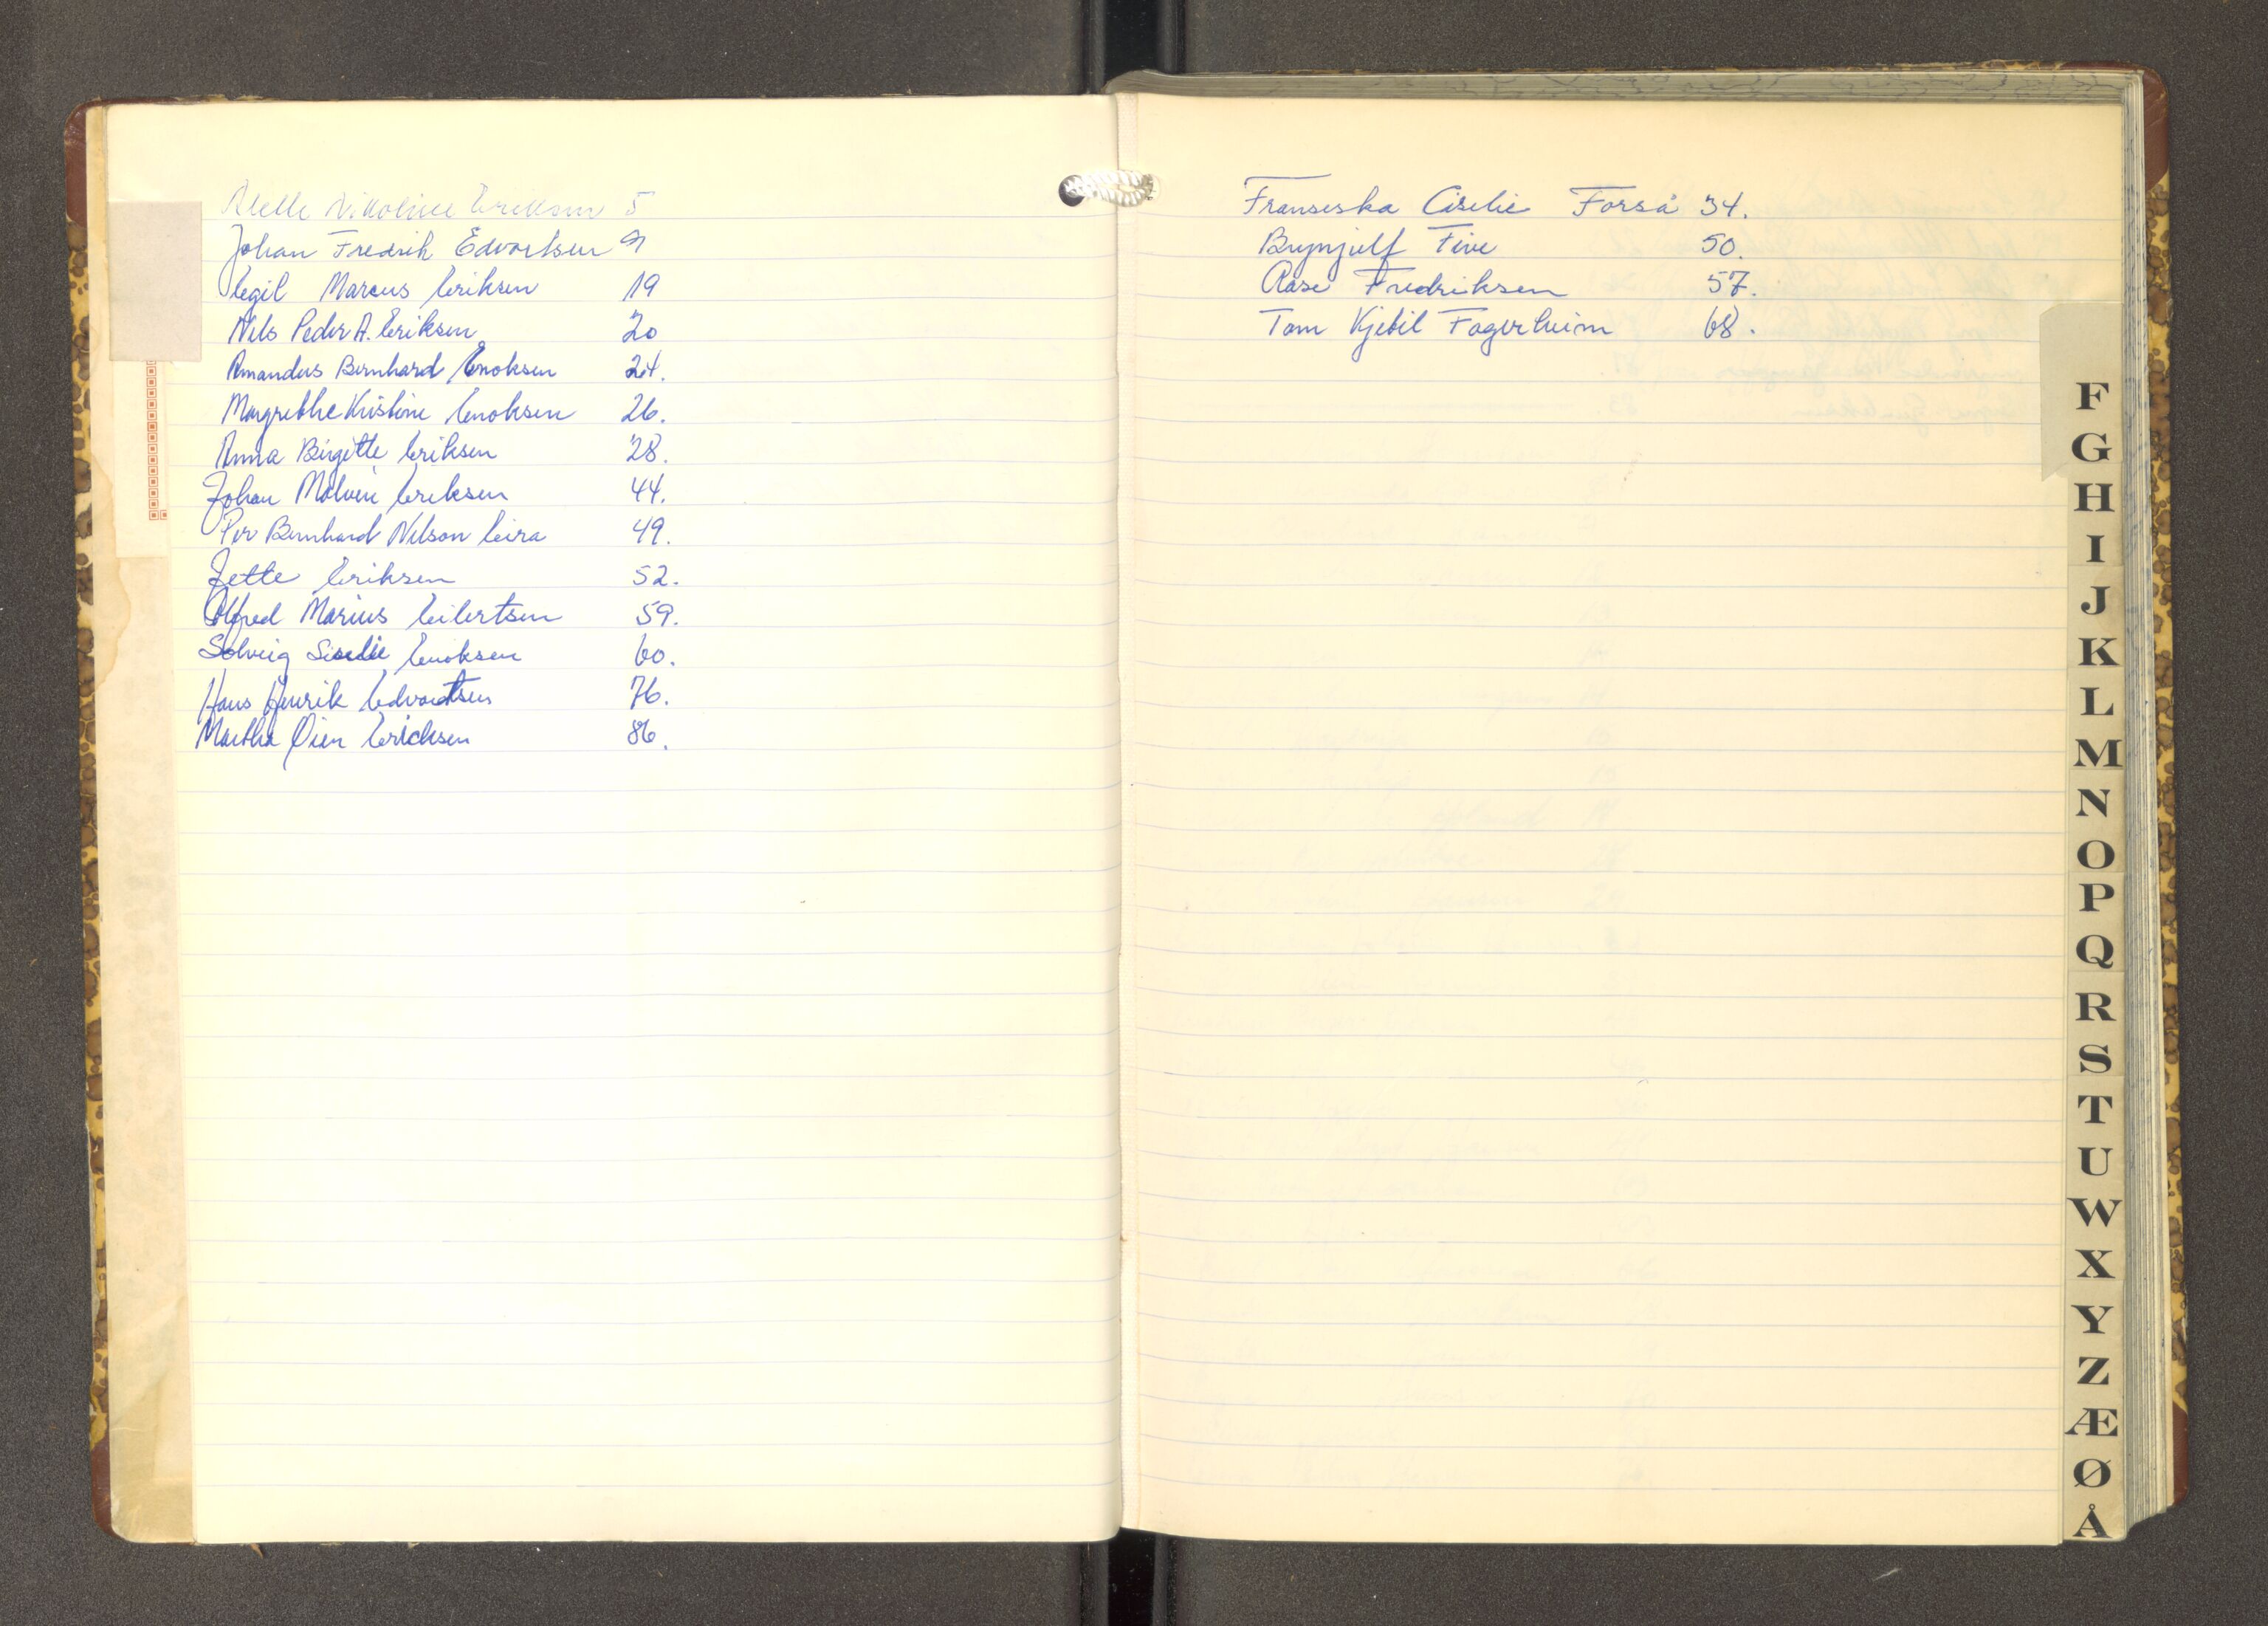 Nikoline Eriksen 5
Johan Fredrik Edvartsen 9
Egil Marcus Eriksen 19
Nils Peder A. Eriksen 20
Amandus Bernhard Enoksen 24.
Margrethe Kristine Enoksen 26.
Anna Birgitte Eriksen 28.
Johan Malvin Eriksen 44.
Per Bernhard Nilson Eira 49.
Jette Eriksen 52.
Alfred Marius Eilertsen 59.
Solveig Enoksen 60.
Hans Henrik Edvardtsen 76.
Martha Øien Ericksen 86.
Franseska Cecilie Forså 34.
Brynjulf Five 50.
Aase Fredriksen 57.
Tom Kjetil Fagerheim 68.
F
G
H
I
J
K
L
M
N
O
P
Q
R
S
T
U
W
X
Y
Z
Æ
Ø
Å